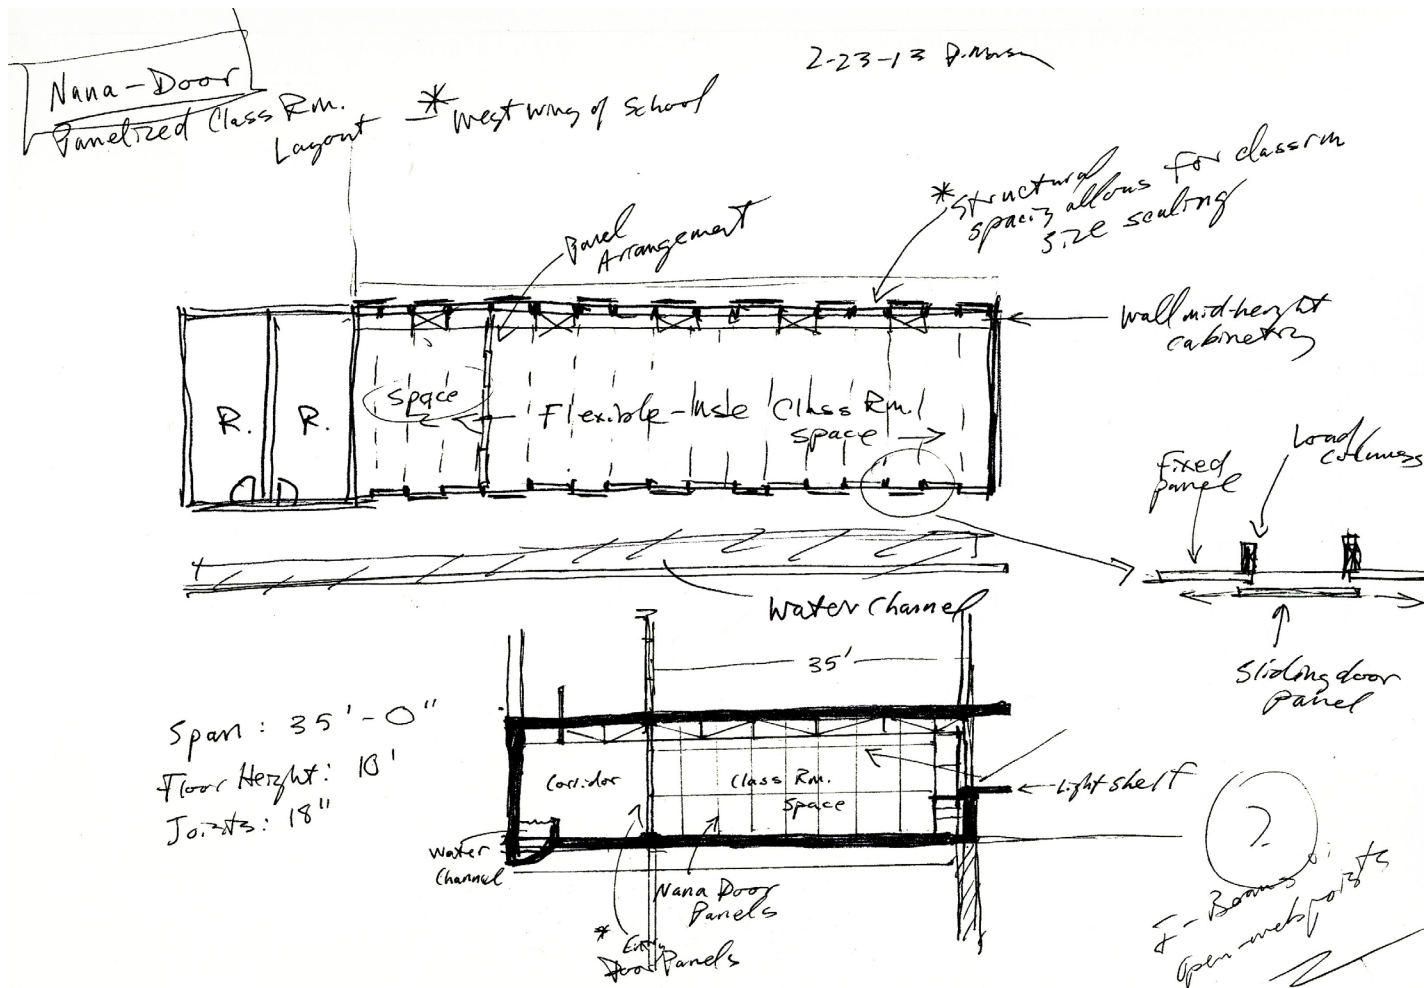 Nana-Door
Panelized Class Rm.
Layout
* West wing of School
2-23-13
* Structural
spacing allows for classrm
size scaling
Panel
Arrangement
Wall mid-height
cabinetry
R.
R.
Space
Flexible-Use Class Rm.
space
Fixed
panel
Load
columns
Water Channel
Sliding door
panel
35'
Span: 35'-0"
Floor Height: 10'
Joists: 18"
Corridor
Class Rm.
Space
Light shelf
Water
Channel
Nana Door
Panels
* Entry
Door Panels
?
I-Beams or
open-web joists